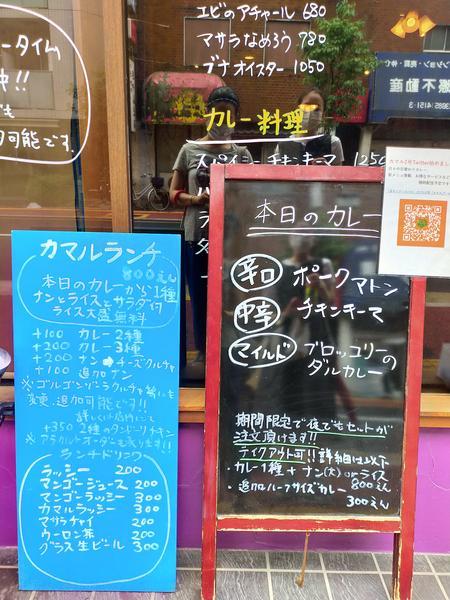 エビのアチャール 680
マサラなめろう 780
ブナオイスター 1050
カレー料理
スパイシーチキンキーマ 1250
ータイム
中!!
でも
可能です.
不動産
3985-4151-3
カマルランチ
800えん
本日のカレーから1種
ナンとライスとサラダ付
ライス大盛無料
+100 カレー2種
+200 カレー3種
+200 ナン→チーズクルチャ
+100 追加ナン
※ゴルゴンゾーラクルチャ等にも
変更、追加可能です!!
詳しくは店内にて
+350 2種のタンドリーチキン
※アラカルトオーダーも承ります!!
ランチドリンク
ラッシー 200
マンゴージュース 200
マンゴーラッシー 300
カマルラッシー 300
マサラチャイ 200
ウーロン茶 200
グラス生ビール 300
本日のカレー
辛口 ポークマトン
中辛 チキンキーマ
マイルド ブロッコリーの
ダルカレー
期間限定で夜でもセットが
注文頂けます!!
テイクアウト可!!詳細は以下
カレー1種+ナン(大)orライス
800えん
・追加ハーフサイズカレー
300えん